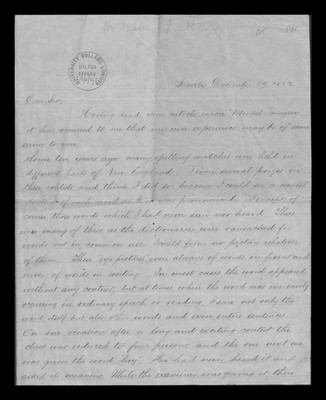 UNIVERSITY COLLEGE LONDON
GALTON PAPERS
December 29, 1882
Dear Sir,
Having read your article upon "Mental imagery"
it has occurred to me that my own experience may be of some
value to you.
Some ten years ago many spelling matches were held in
different parts of New England. I won several prizes in
these contests and think I did so because I could see a mental
picture of each word as it was pronounced, except, of
course, those words which I had never seen nor heard. There
was many of these as the dictionaries were ransacked for
words not in common use. I could form no picture whatever
of them. These were pictures always of words in print and
never of words in writing. In most cases the word appeared
without any context, but at times when the word was one rarely
occurring in ordinary speech or reading, I saw not only the
word itself but also other words and even entire sentences.
On one occasion after a long and exciting contest the
class was reduced to four persons and the one next me
was given the word "hoy". He had never heard it and
asked its meaning. While the examiner was giving it there